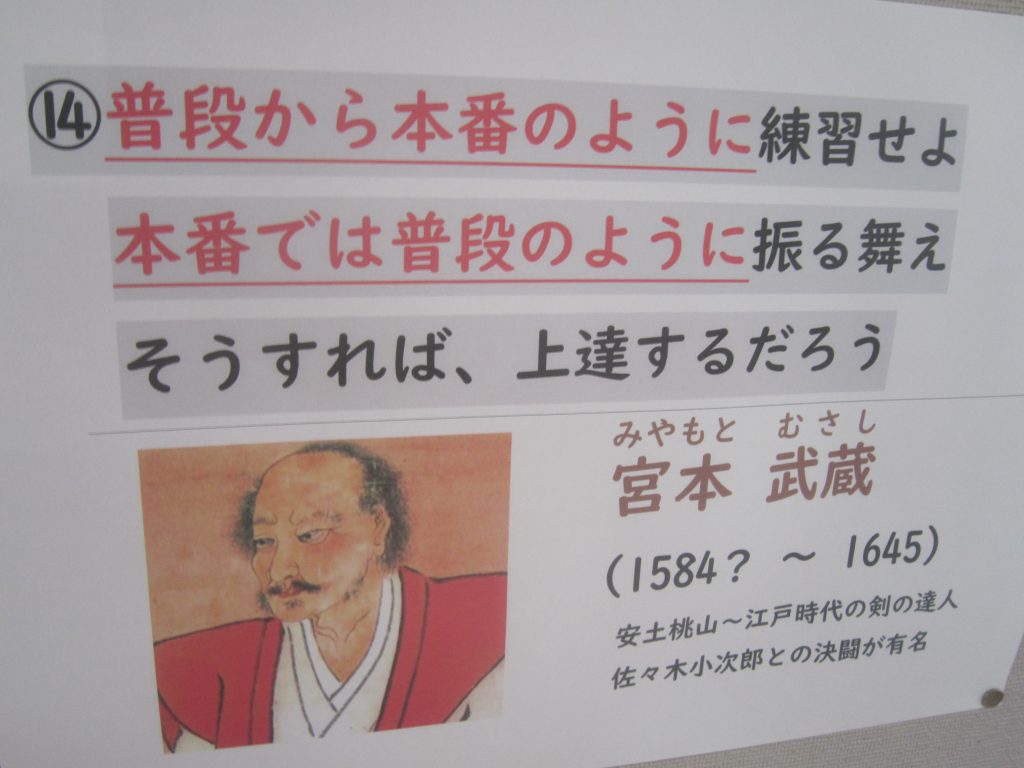 ⑭普段から本番のように練習せよ
本番では普段のように振る舞え
そうすれば、上達するだろう
みやもと むさし
宮本 武蔵
(1584? ～ 1645)
安土桃山～江戸時代の剣の達人
佐々木小次郎との決闘が有名